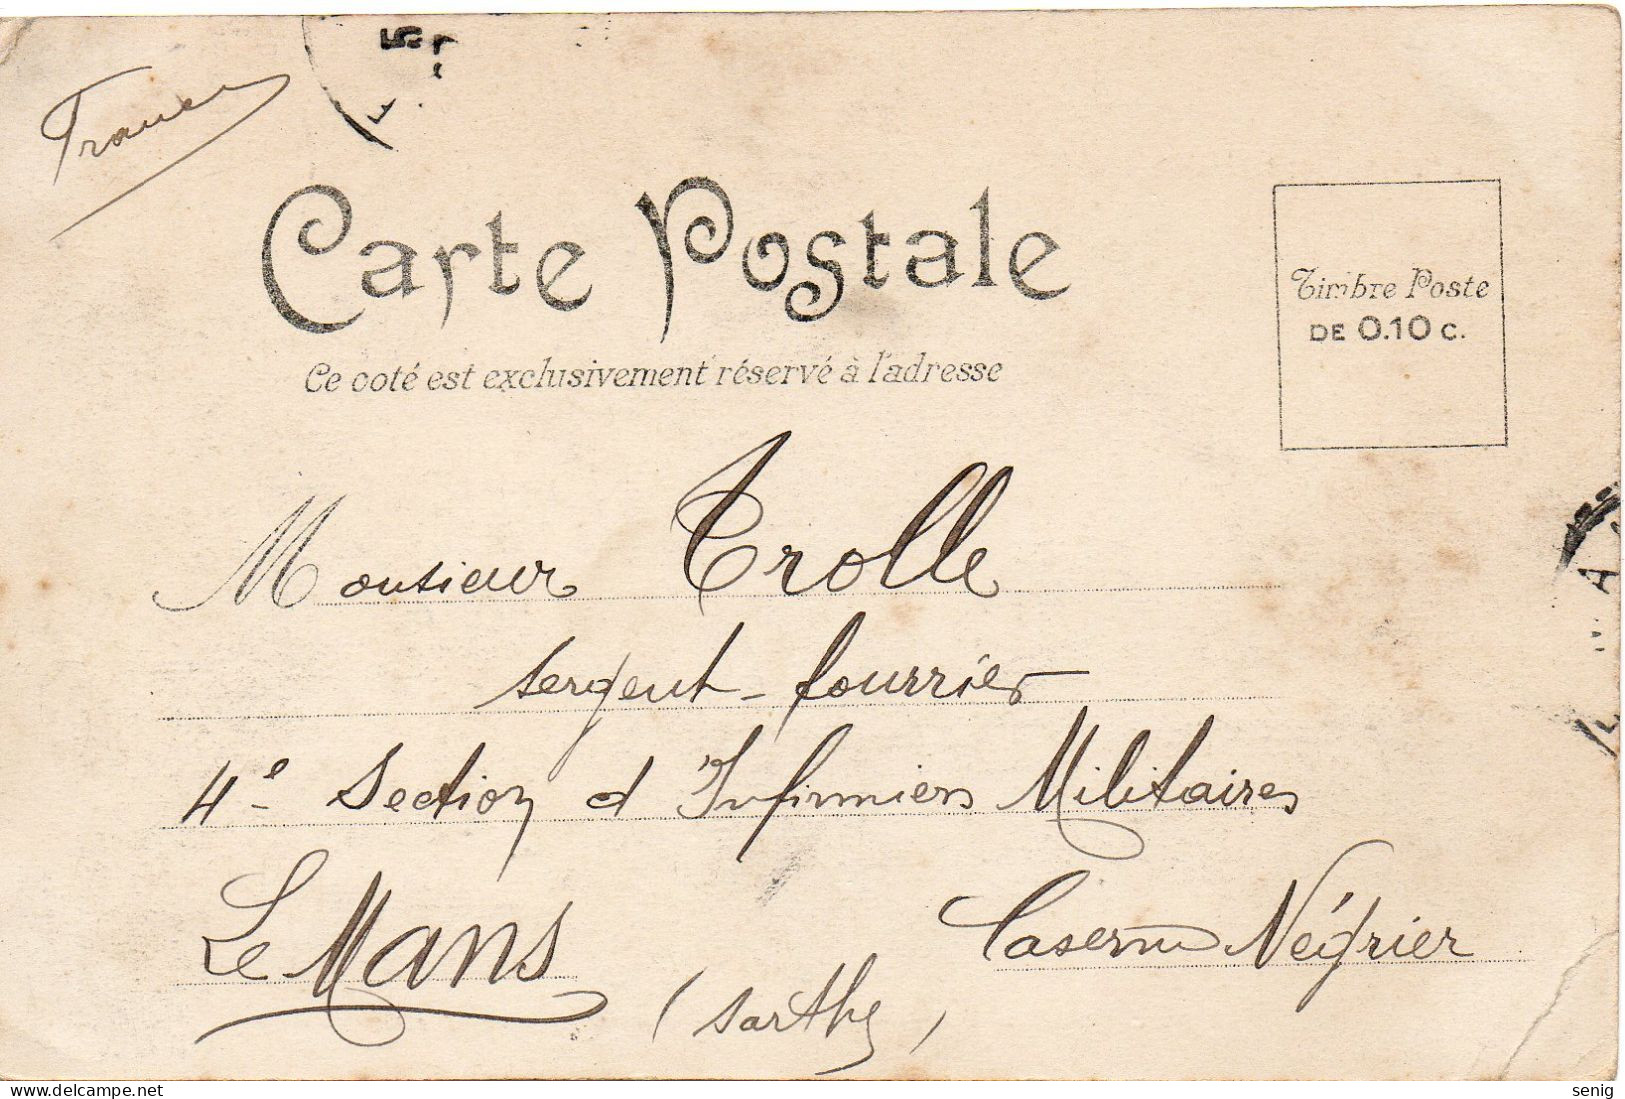 France
5
Carte Postale
Ce coté est exclusivement réservé à l'adresse
Timbre Poste
DE 0.10 C.
Monsieur Trolle
sergent-fourrier
4e Section d'Infirmiers Militaires
Le Mans Caserne Négrier
(Sarthe)
delcampe.net
senig